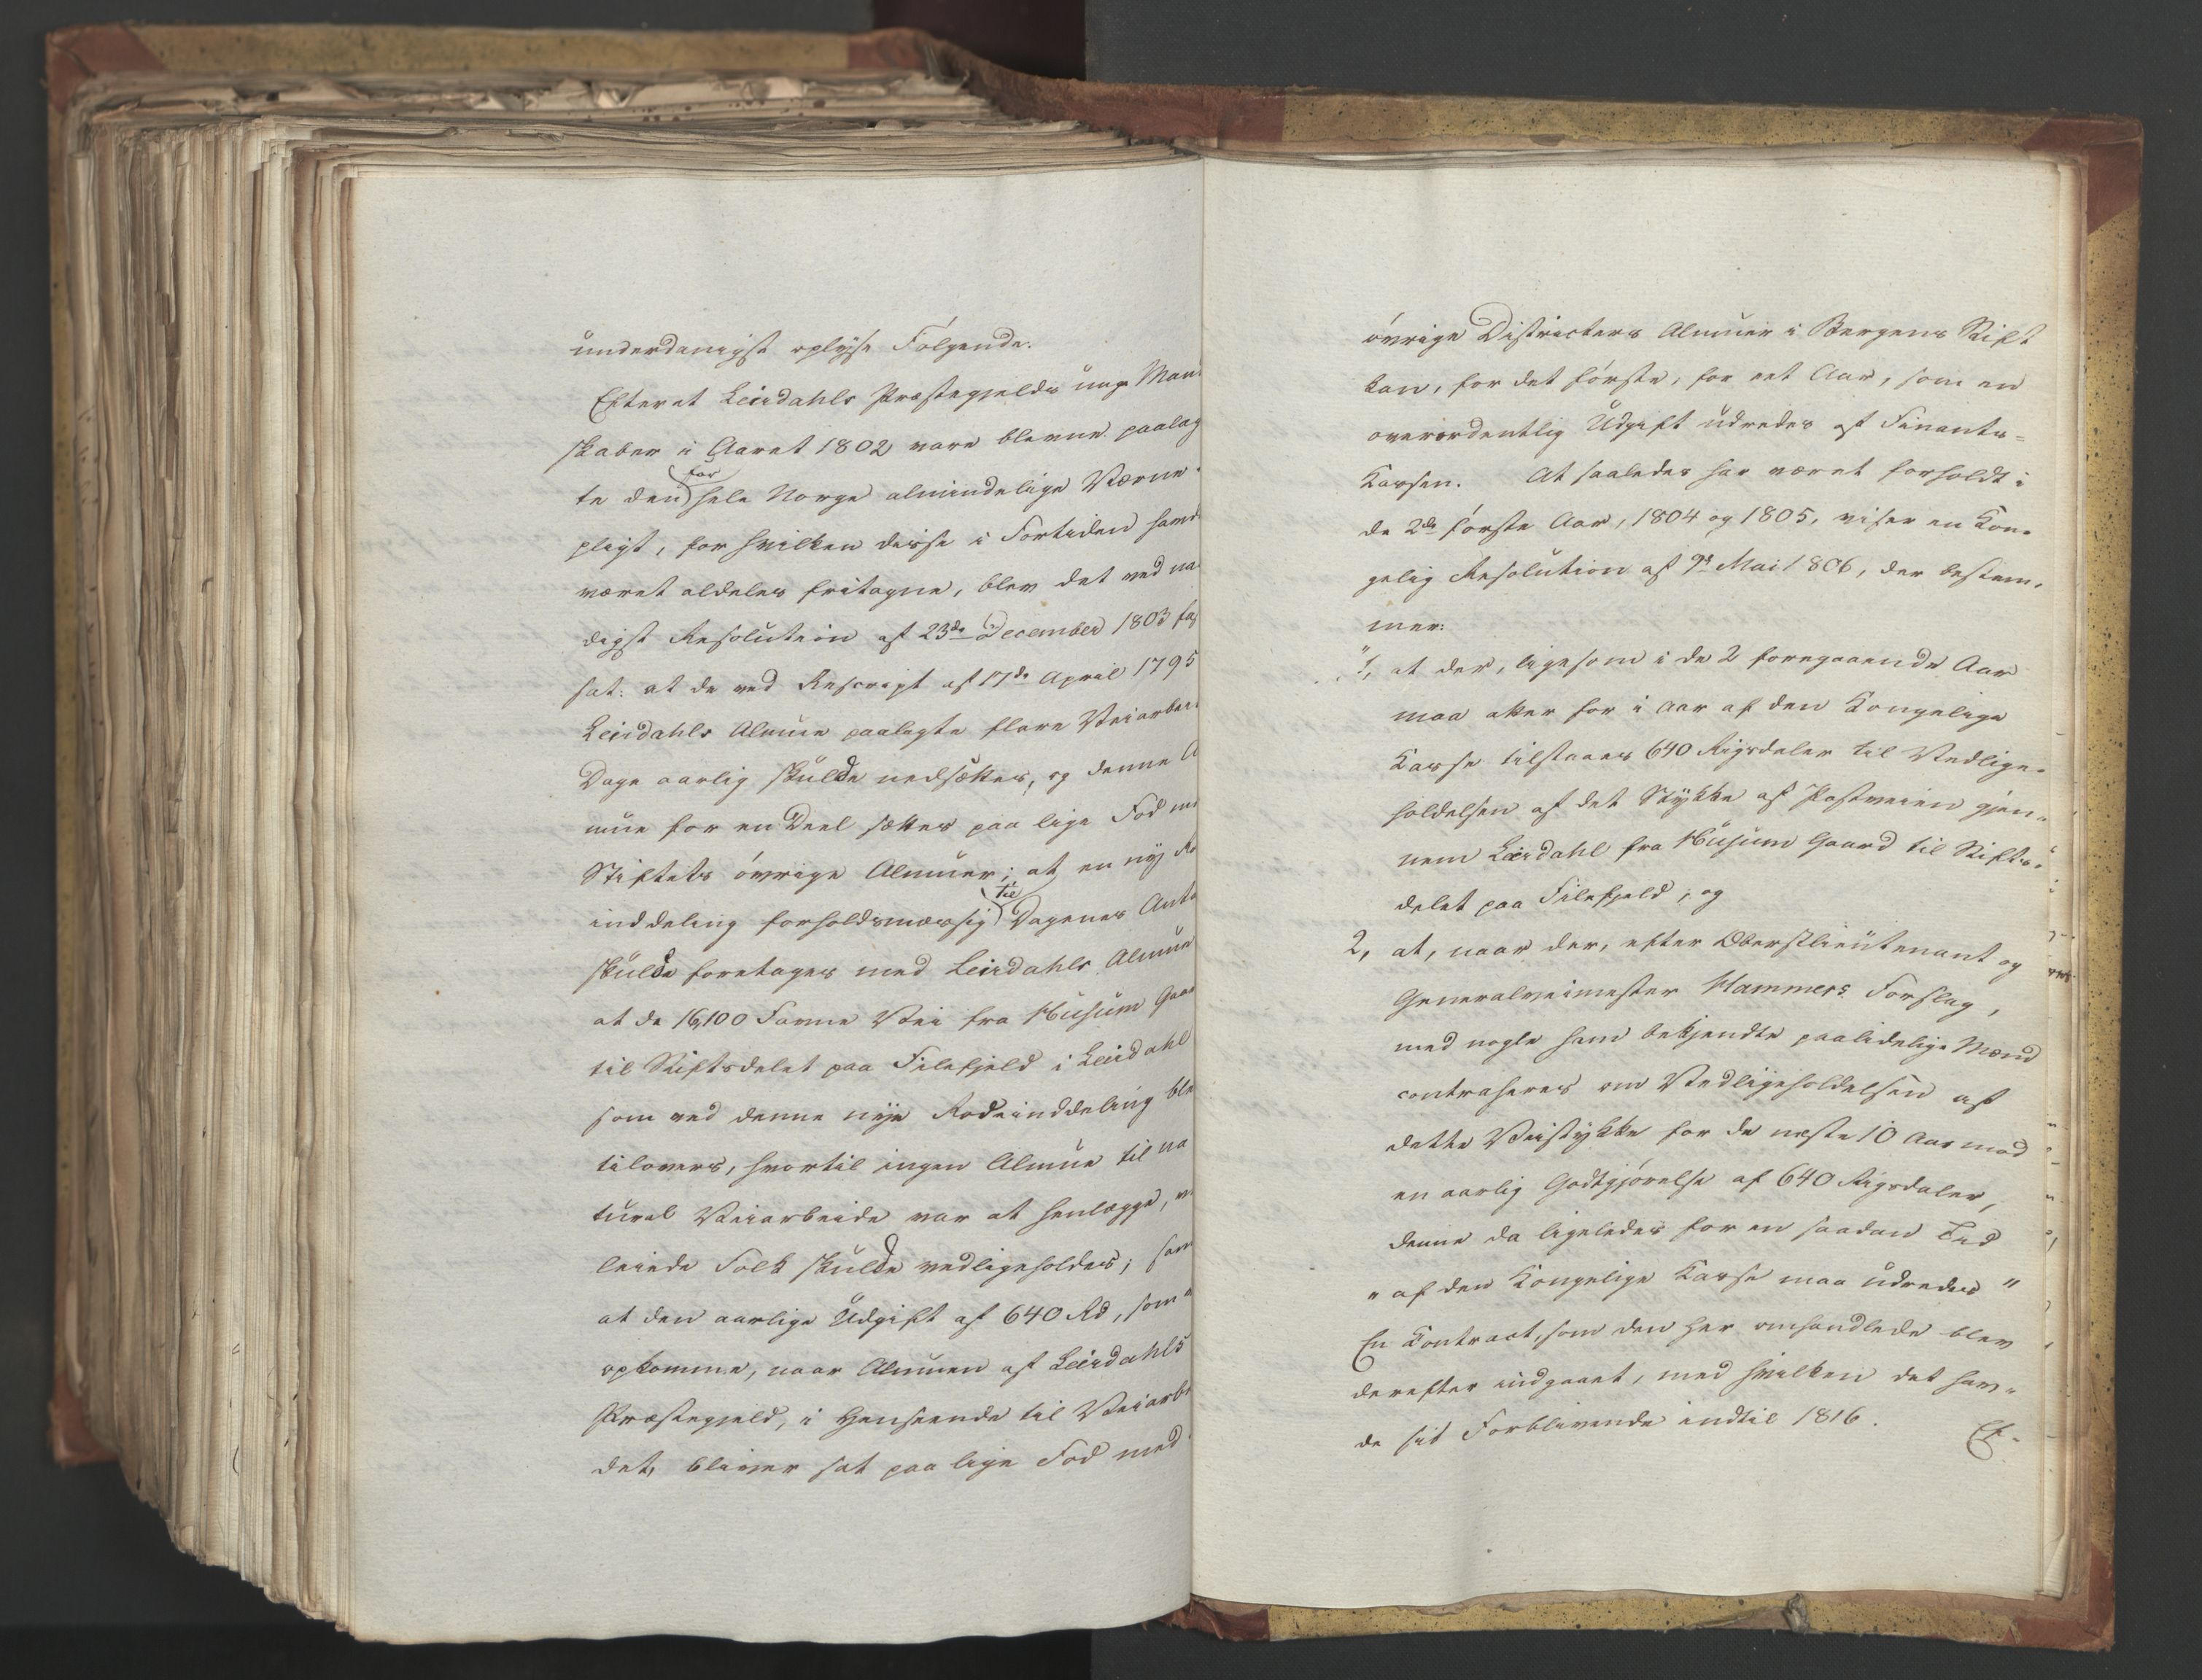 underdanigst oplyse Følgende.
Efterat Leirdahls Præstegjelds unge Mand
skaber i Aaret 1802 vare blevne paalag
te den for hele Norge almindelige Værne
pligt, for hvilken disse i Fortiden havd
været aldeles fritagne, blev det ved na
digst Resolution af 23de December 1803 fast
sat: at de ved Rescript af 17de April 1795
Leirdahls Almue paalagte flere Veiarbei
Dage aarlig skulde nedsættes, og denne Al
mue for en Deel sættes paa lige Fod me
Stiftets øvrige Almuer; at en ny Ro
inddeling forholdsmæssig til Dagenes Anta
skulde foretages med Leirdahls Almue
at de 16,100 Favne Vei fra Husum Gaar
til Stiftsdelet paa Filefjeld i Leirdahl
som ved denne nye Rodeinddeling ble
tilovers, hvortil ingen Almue til na
tural Veiarbeide var at henlægge, v
leiede Folk skulde vedligeholdes; sam
at den aarlige Udgift af 640 Rd, som
opkomme, naar Almuen af Leirdahls
Præstegjeld, i Henseende til Veiarbei
det, bliver sat paa lige Fod med
øvrige Districters Almuer i Bergens Stift
kan, for det første, for eet Aar, som en
overordentlig Udgift udredes af Finants-
Kassen. At saaledes har været forholdt i
de 2de første Aar, 1804 og 1805, viser en Kon-
gelig Resolution af 9de Mai 1806, der bestem-
mer:
"1, at der, ligesom i de 2 foregaaende Aar
maa atter for i Aar af den Kongelige
Kasse tilstaaes 640 Rigsdaler til Vedlige-
holdelsen af det Stykke af Postveien gjen-
nem Leirdahl fra Husum Gaard til Stifts-
delet paa Filefjeld; og
2, at, naar der, efter Oberstlieutenant og
Generalveimester Hammers Forslag,
med nogle ham bekjendte paalidelige Mænd
contraheres om Vedligeholdelsen af
dette Veistykke for de næste 10 Aar mod
en aarlig Godtgjørelse af 640 Rigsdaler,
denne da ligeledes for en saadan Tid
" af den Kongelige Kasse maa udredes "
En Contract, som den her omhandlede blev
derefter indgaaet, med hvilken det hav-
de sit Forblivende indtil 1816.
Ef-